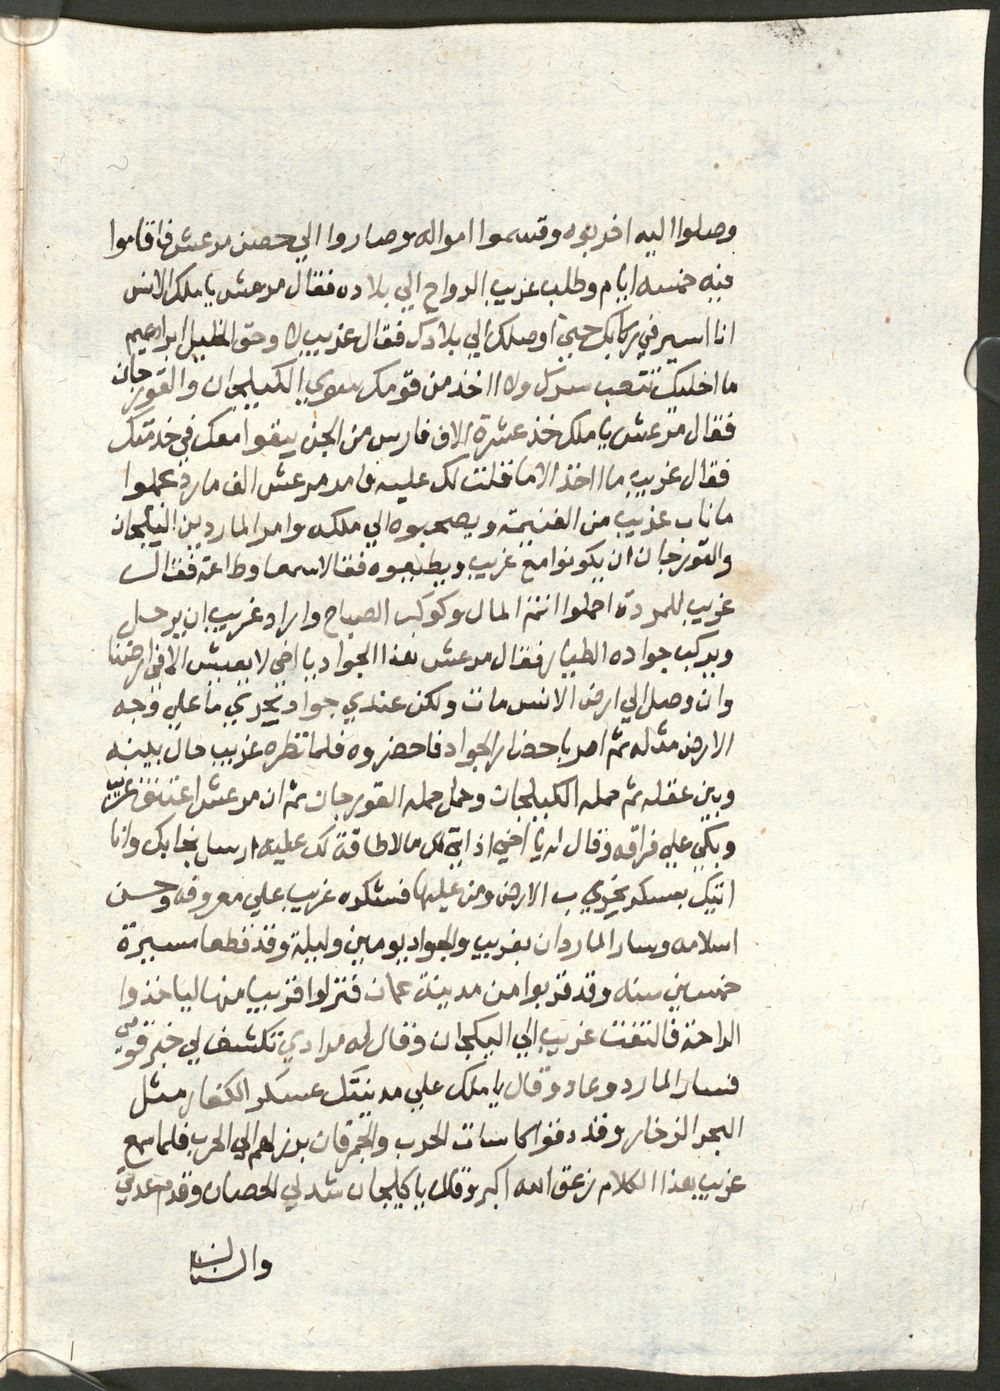 وصلوا اليه اخربوه وقسموا امواله وصاروا الي حصن مرعش فاقاموا
فيه خمسه ايام وطلب غريب الرواح الي بلاده فقال مرعش يا ملك الانس
انا اسير في ركابك حتي اوصلك الي بلادك فقال غريب لا وحق الخليل ابراهيم
ما اخليك تتعب سرك ولا اخذ من قومك سوي الكيلجان والقورجان
فقال مرعش يا ملك خذ عشرة الاف فارس من الجن يبقوا معك في خدمتك
فقال غريب ما اخذ الا ما قلت لك عليه فامر مرعش الف مارد يحملوا
ما ناب غريب من الغنيمة ويصحبوه الي ملكه وامر الماردين الكيلجان
والقورجان ان يكونوا مع غريب ويطيعوه فقالا سمعا وطاعة فقال
غريب للمردة احملوا انتم المال وكوكب الصباح واراد غريب ان يرحل
ويركب جواده الطيار فقال مرعش هذا الجواد يا اخي لا يعيش الا في ارضنا
وان وصل الي ارض الانس مات ولكن عندي جواد بحري ما علي وجه
الارض مثله ثم امر باحضار الجواد فاحضروه فلما نظره غريب حال بينه
وبين عقله ثم حمله الكيلجان وحمل حمله القورجان ثم ان مرعش اعتنق غريب
وبكي علي فراقه وقال له يا اخي اذا اتي لك ما لا طاقة لك عليه ارسل نجابك وانا
اتيك بعسكر يخرب الارض ومن عليها فشكره غريب علي معروفه وحسن
اسلامه وسار الماردان بغريب والجواد يومين وليلة وقد قطعا مسيرة
خمسين سنه وقد قربوا من مدينة عمان فنزلوا قريب منها لياخذوا
الراحة فالتفت غريب الي الكيلجان وقال له مرادي تكشف لي خبر قومي
فسار المارد وعاد وقال يا ملك علي مدينتك عسكر الكفار مثل
البحر الزخار وقد دقوا كاسات الحرب والجمرقان برز لهم الي الحرب فلما سمع
غريب هذا الكلام زعق الله اكبر وقال يا كيلجان شد لي الحصان وقدم عدتي
والسنان